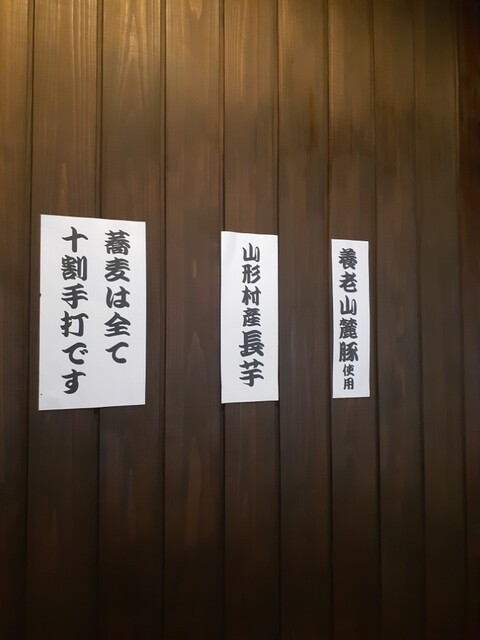 養老山麓豚使用
山形村産長芋
蕎麦は全て
十割手打です